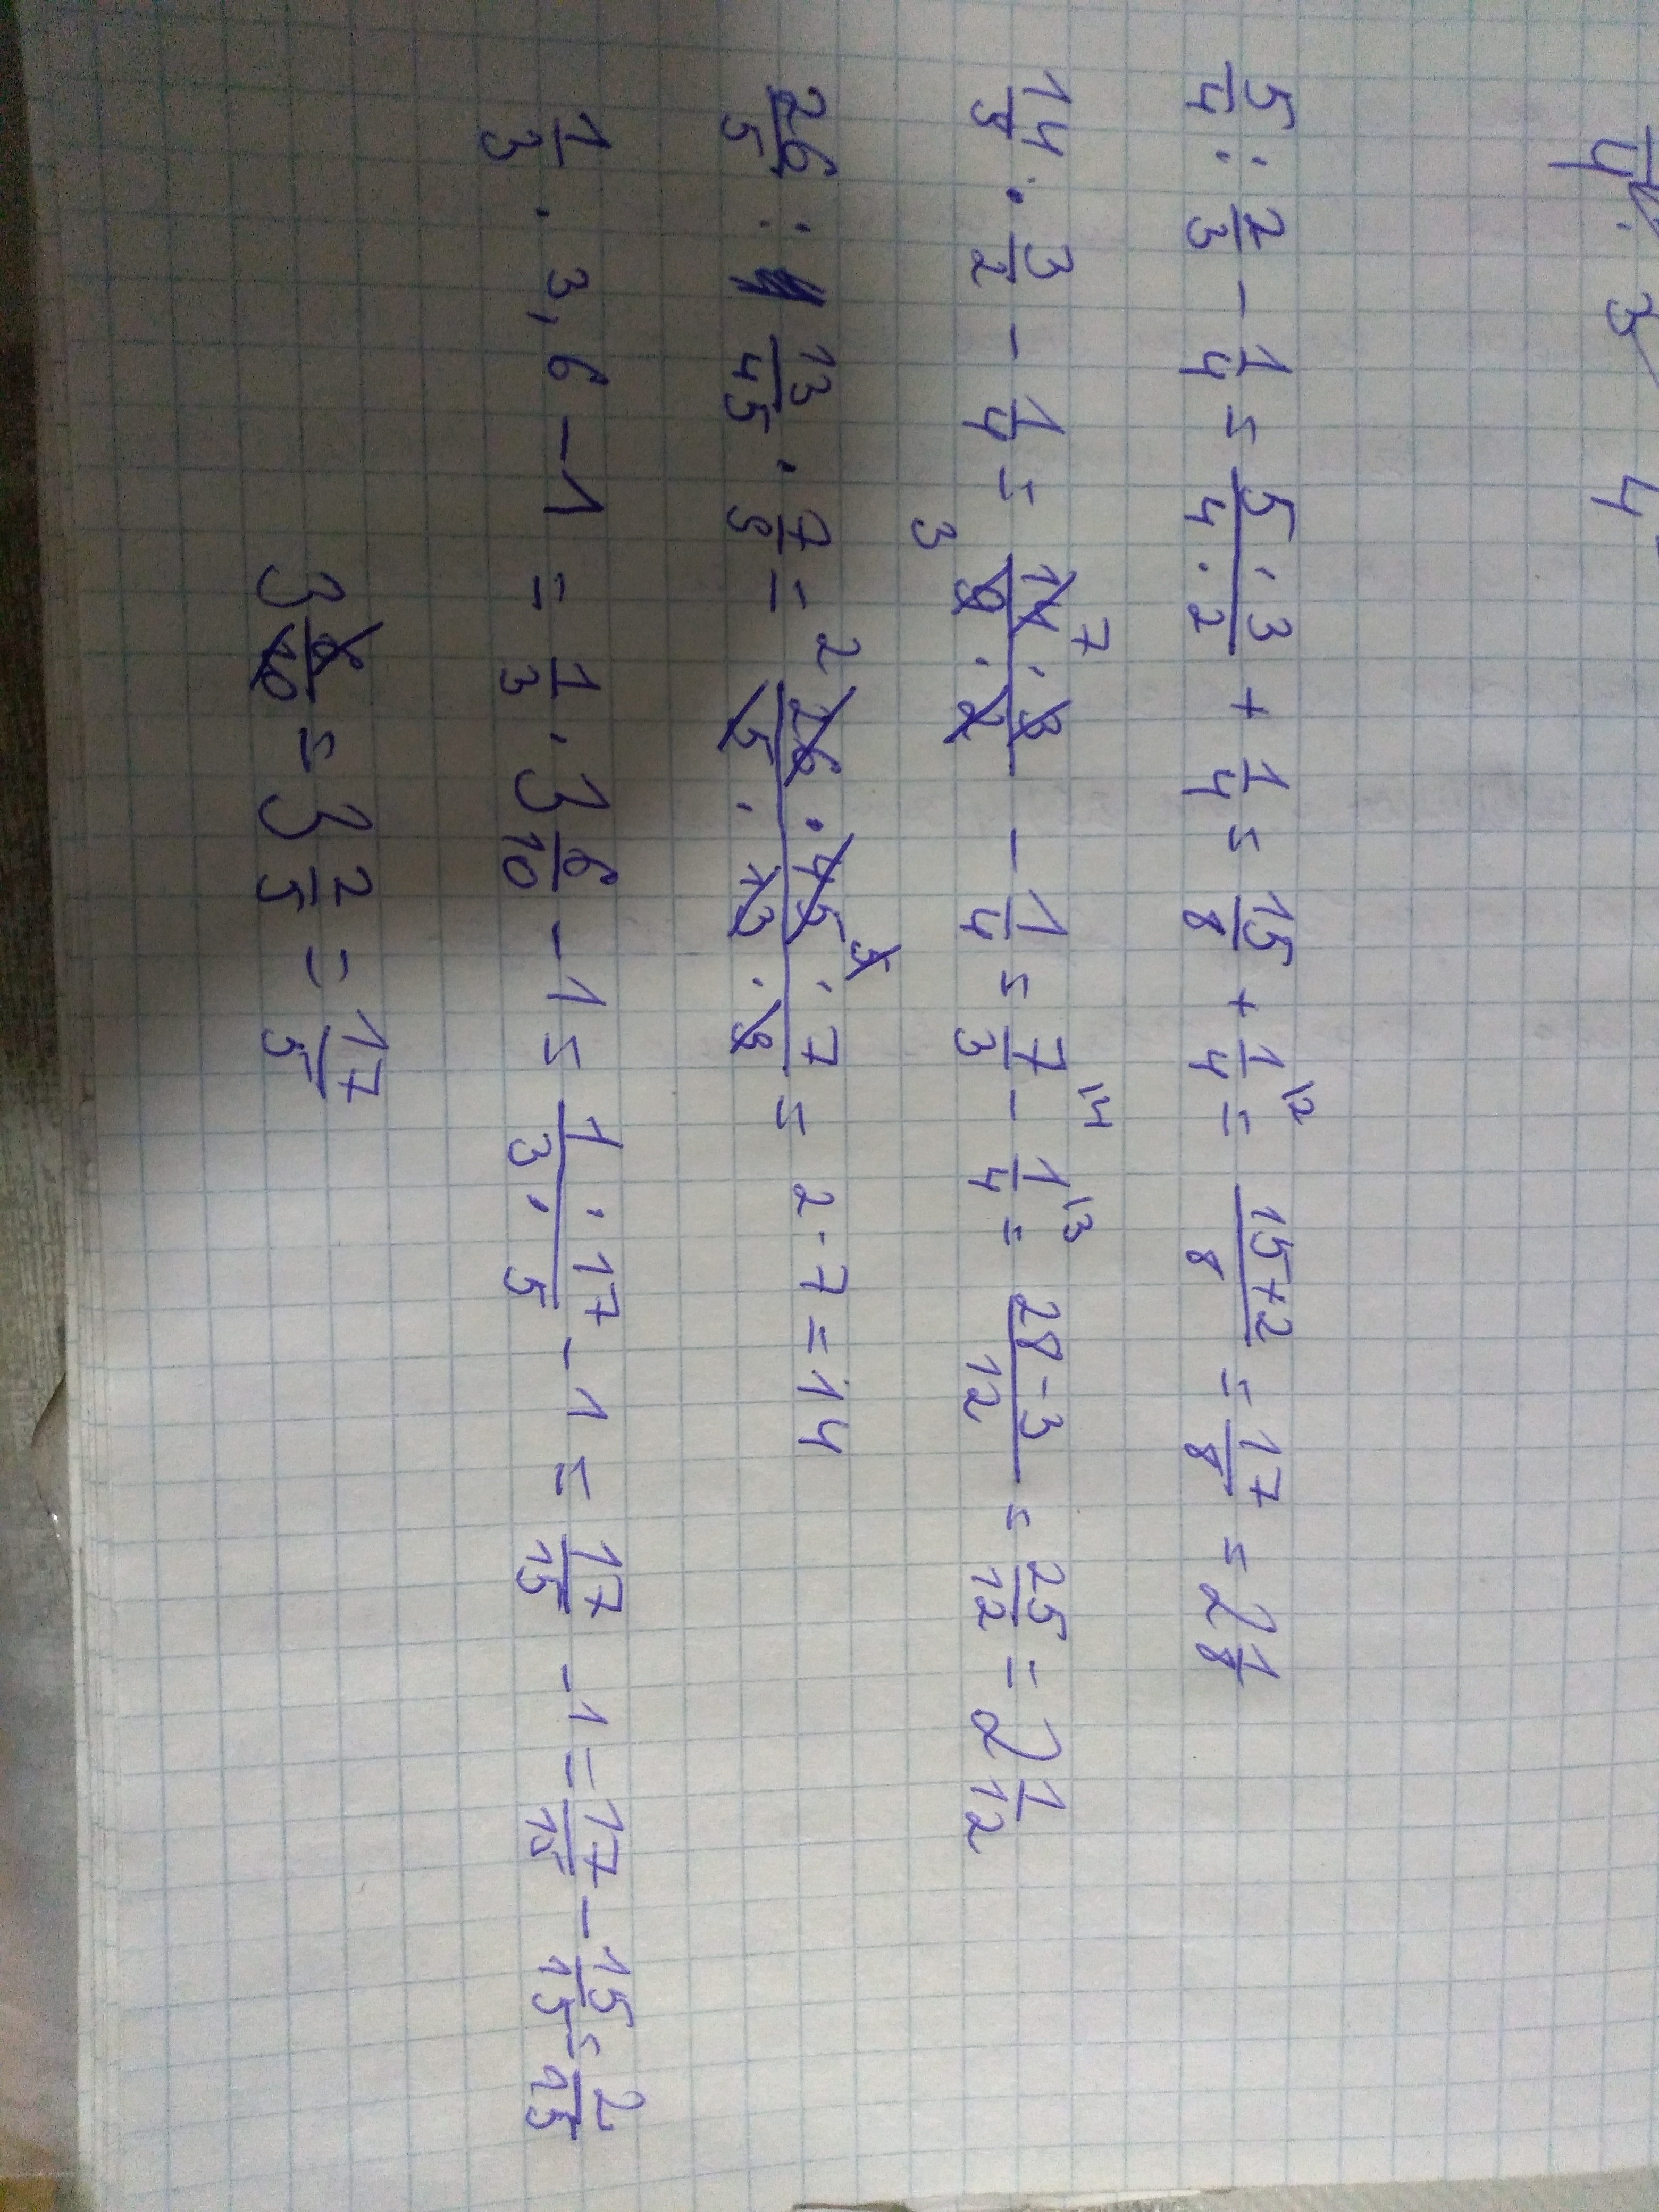 4 : 3 4
5/4 : 2/3 - 1/4 = 5·3/4·2 + 1/4 = 15/8 + 1/4 \2 = 15+2/8 = 17/8 = 2 1/8
14/9 · 3/2 - 1/4 = 14 7 · 3/9 3 · 2 - 1/4 = 7/3 \4 - 1/4 \3 = 28-3/12 = 25/12 = 2 1/12
26/5 : 13/45 · 7/9 = 2 26 · 45 5 · 7/5 · 13 · 9 = 2·7=14
1/3 · 3,6 - 1 = 1/3 · 3 6/10 - 1 = 1·17/3·5 - 1 = 17/15 - 1 = 17/15 - 15/15 = 2/15
3 6/10 = 3 2/5 = 17/5